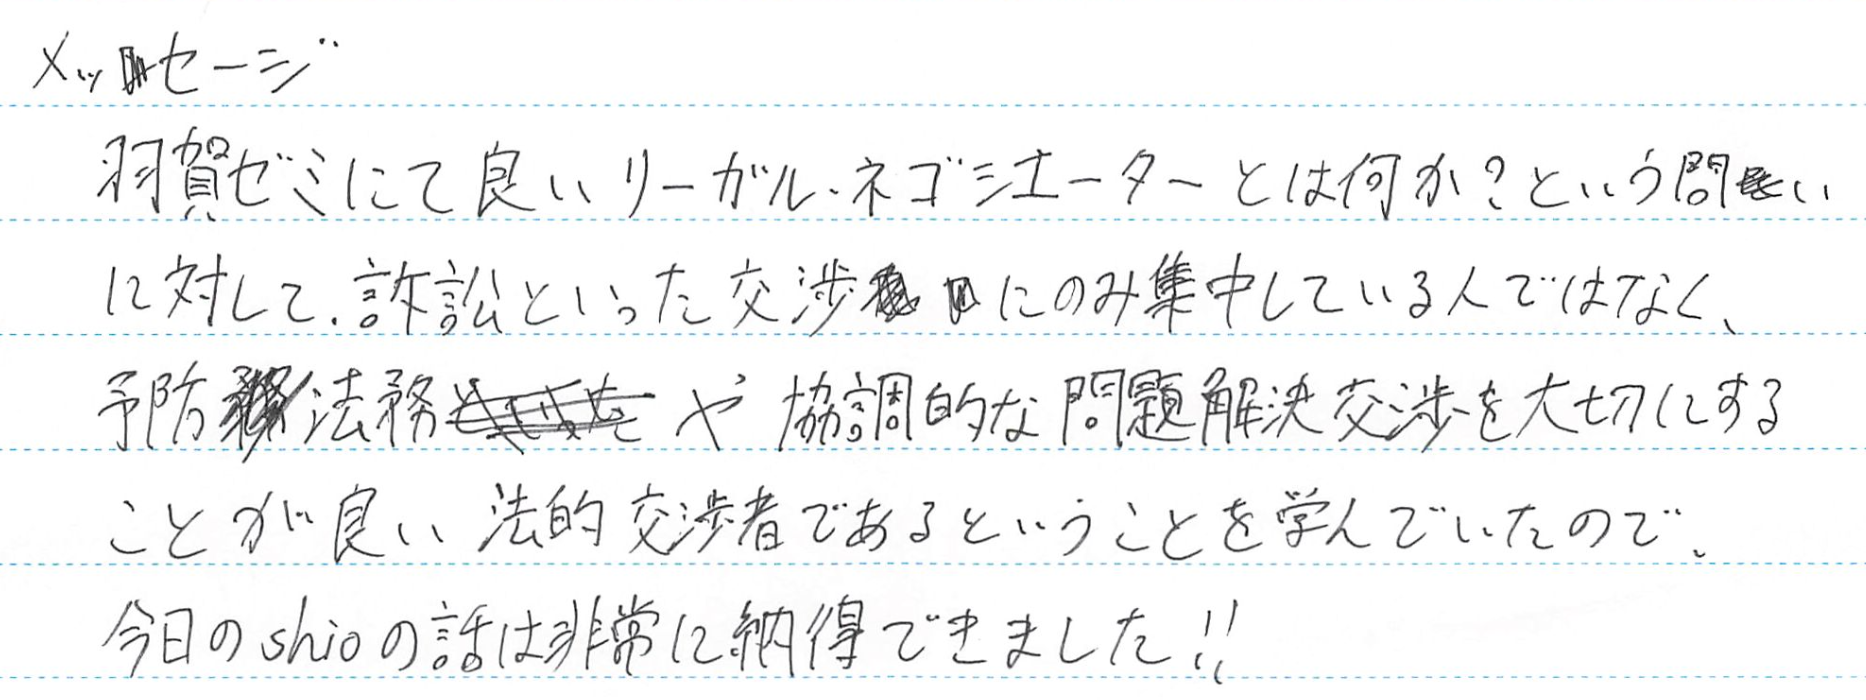 メッセージ
羽賀ゼミにて良いリーガル・ネゴシエーターとは何か?という問い
に対して、訴訟といった交渉にのみ集中している人ではなく、
予防法務や協調的な問題解決交渉を大切にする
ことが良い法的交渉者であるということを学んでいたので、
今日のshioの話は非常に納得できました!!